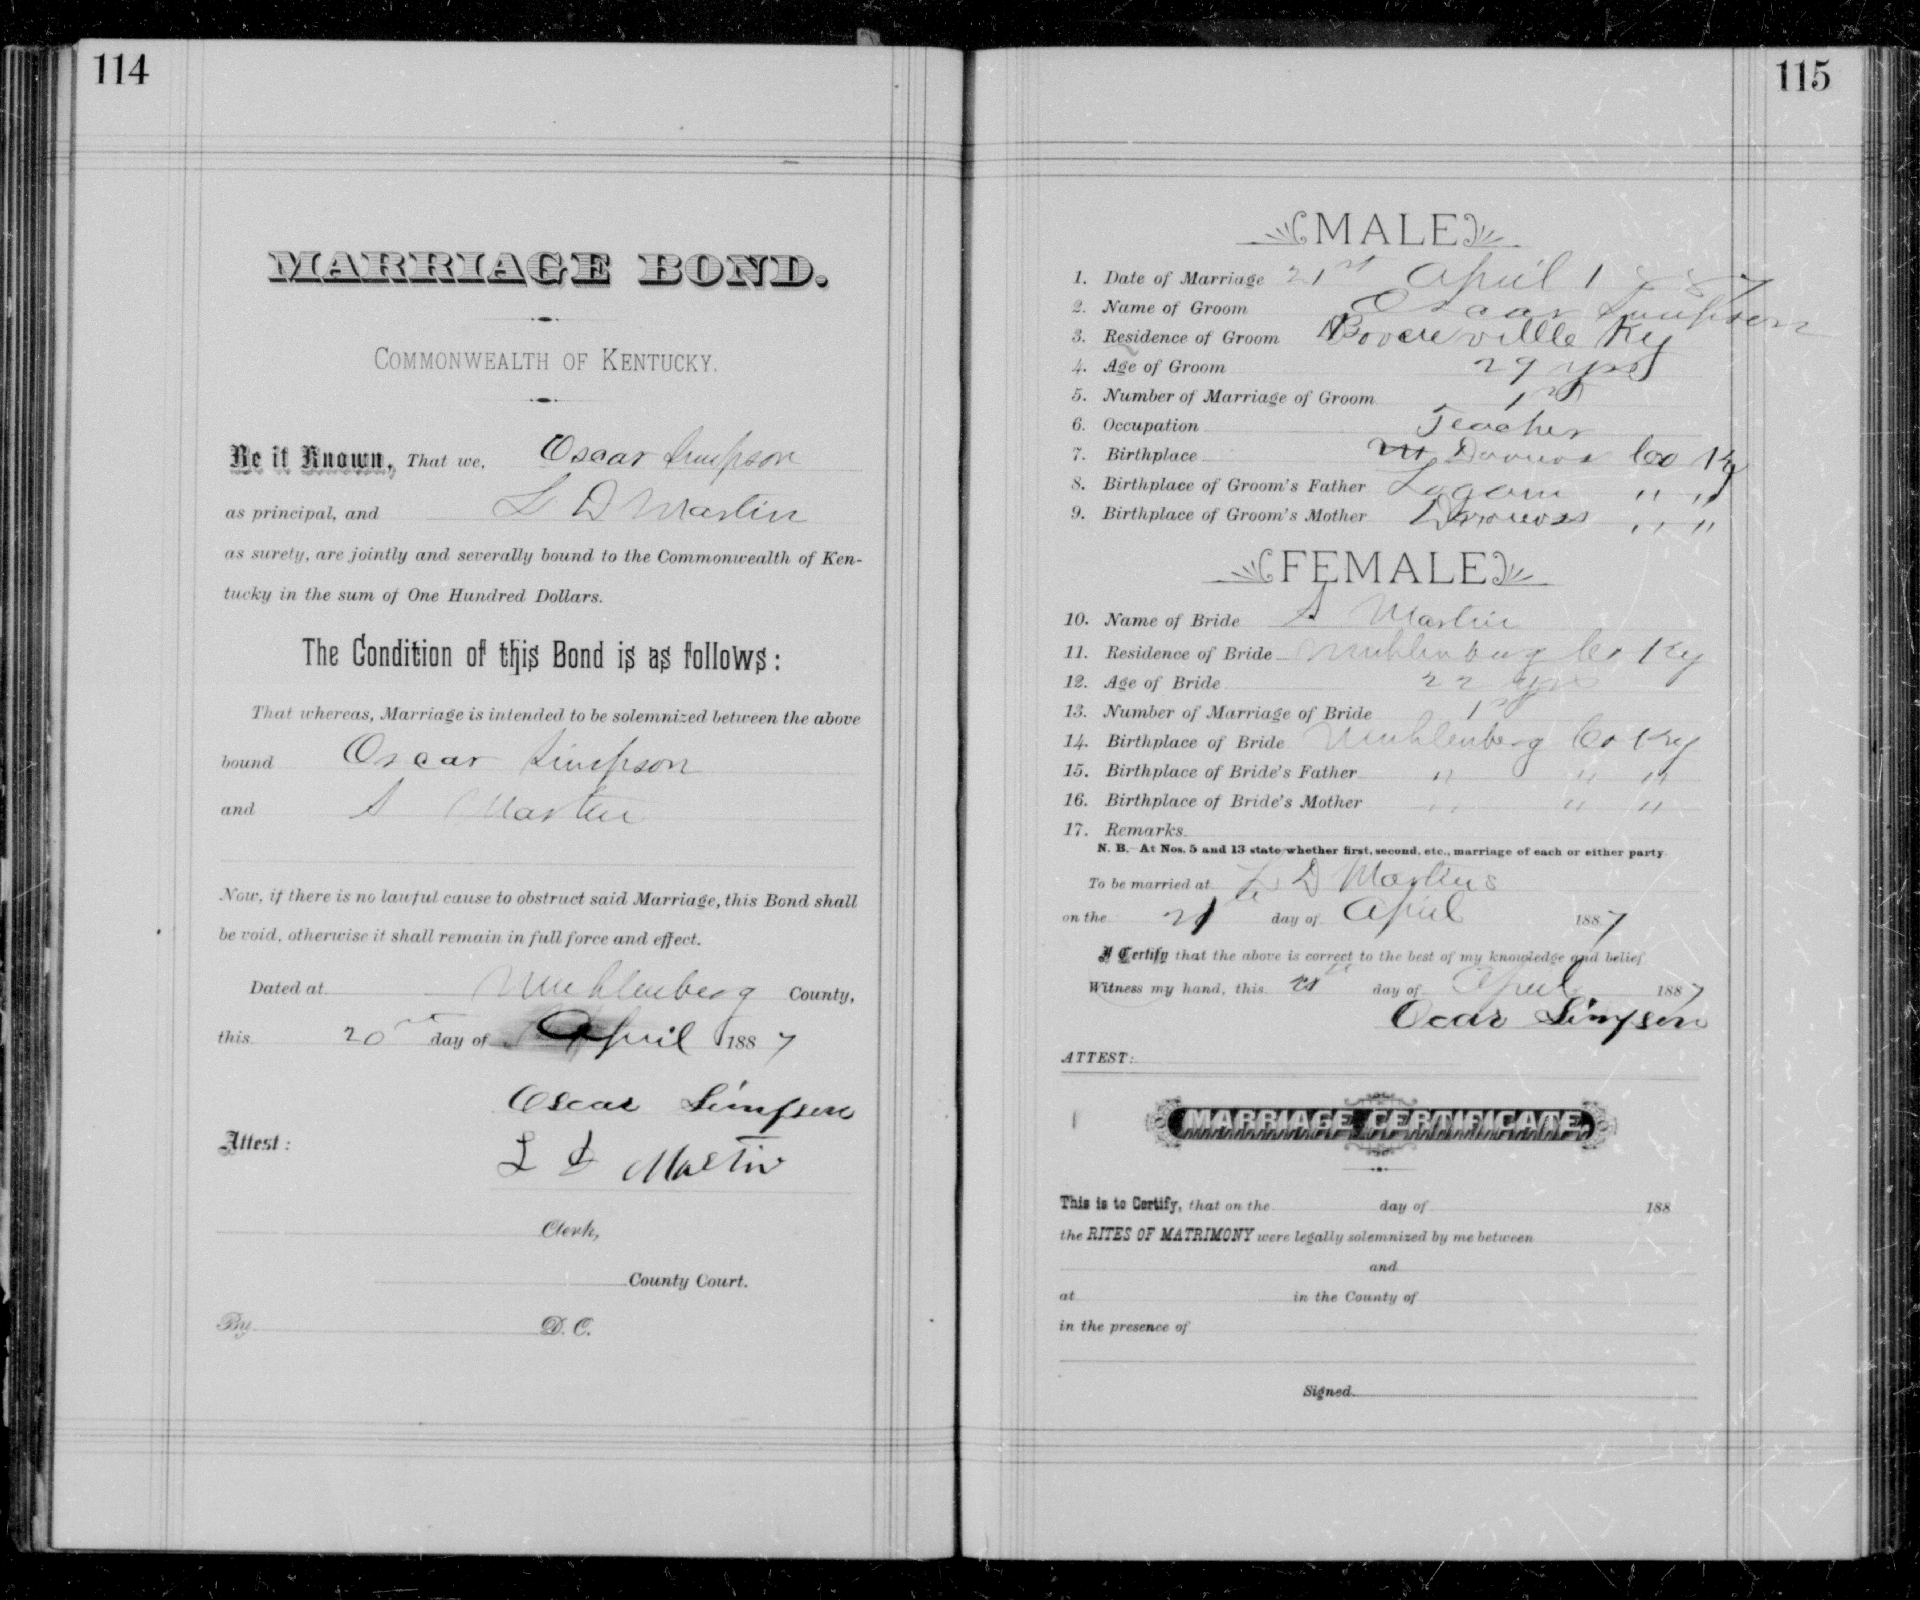 114
MARRIAGE BOND.
COMMONWEALTH OF KENTUCKY.
Be it Known, That we, Oscar Simpson
as principal, and L D Martin
as surety, are jointly and severally bound to the Commonwealth of Ken-
tucky in the sum of One Hundred Dollars.
The Condition of this Bond is as follows:
That whereas, Marriage is intended to be solemnized between the above
bound Oscar Simpson
and S Martin
Now, if there is no lawful cause to obstruct said Marriage, this Bond shall
be void, otherwise it shall remain in full force and effect.
Dated at Muhlenberg County,
this 20 day of April 1887
Oscar Simpson
Attest: L D Martin
Clerk,
County Court.
By D. C.
115
MALE
1. Date of Marriage 21st April 1887
2. Name of Groom Oscar Simpson
3. Residence of Groom Ky
4. Age of Groom 29 yrs
5. Number of Marriage of Groom 1st
6. Occupation Teacher
7. Birthplace Daviess Co Ky
8. Birthplace of Groom's Father Logan " "
9. Birthplace of Groom's Mother Daviess " "
FEMALE
10. Name of Bride S Martin
11. Residence of Bride Muhlenburg Co Ky
12. Age of Bride 22 yrs
13. Number of Marriage of Bride 1st
14. Birthplace of Bride Muhlenberg Co Ky
15. Birthplace of Bride's Father " " "
16. Birthplace of Bride's Mother " " "
17. Remarks
N. B.—At Nos. 5 and 13 state whether first, second, etc., marriage of each or either party
To be married at L D Martins
on the 21 day of April 1887
I Certify that the above is correct to the best of my knowledge and belief
Witness my hand, this day of April 1887
Ocar Simpson
ATTEST:
MARRIAGE CERTIFICATE
This is to Certify, that on the day of 188
the RITES OF MATRIMONY were legally solemnized by me between
and
at in the County of
in the presence of
Signed